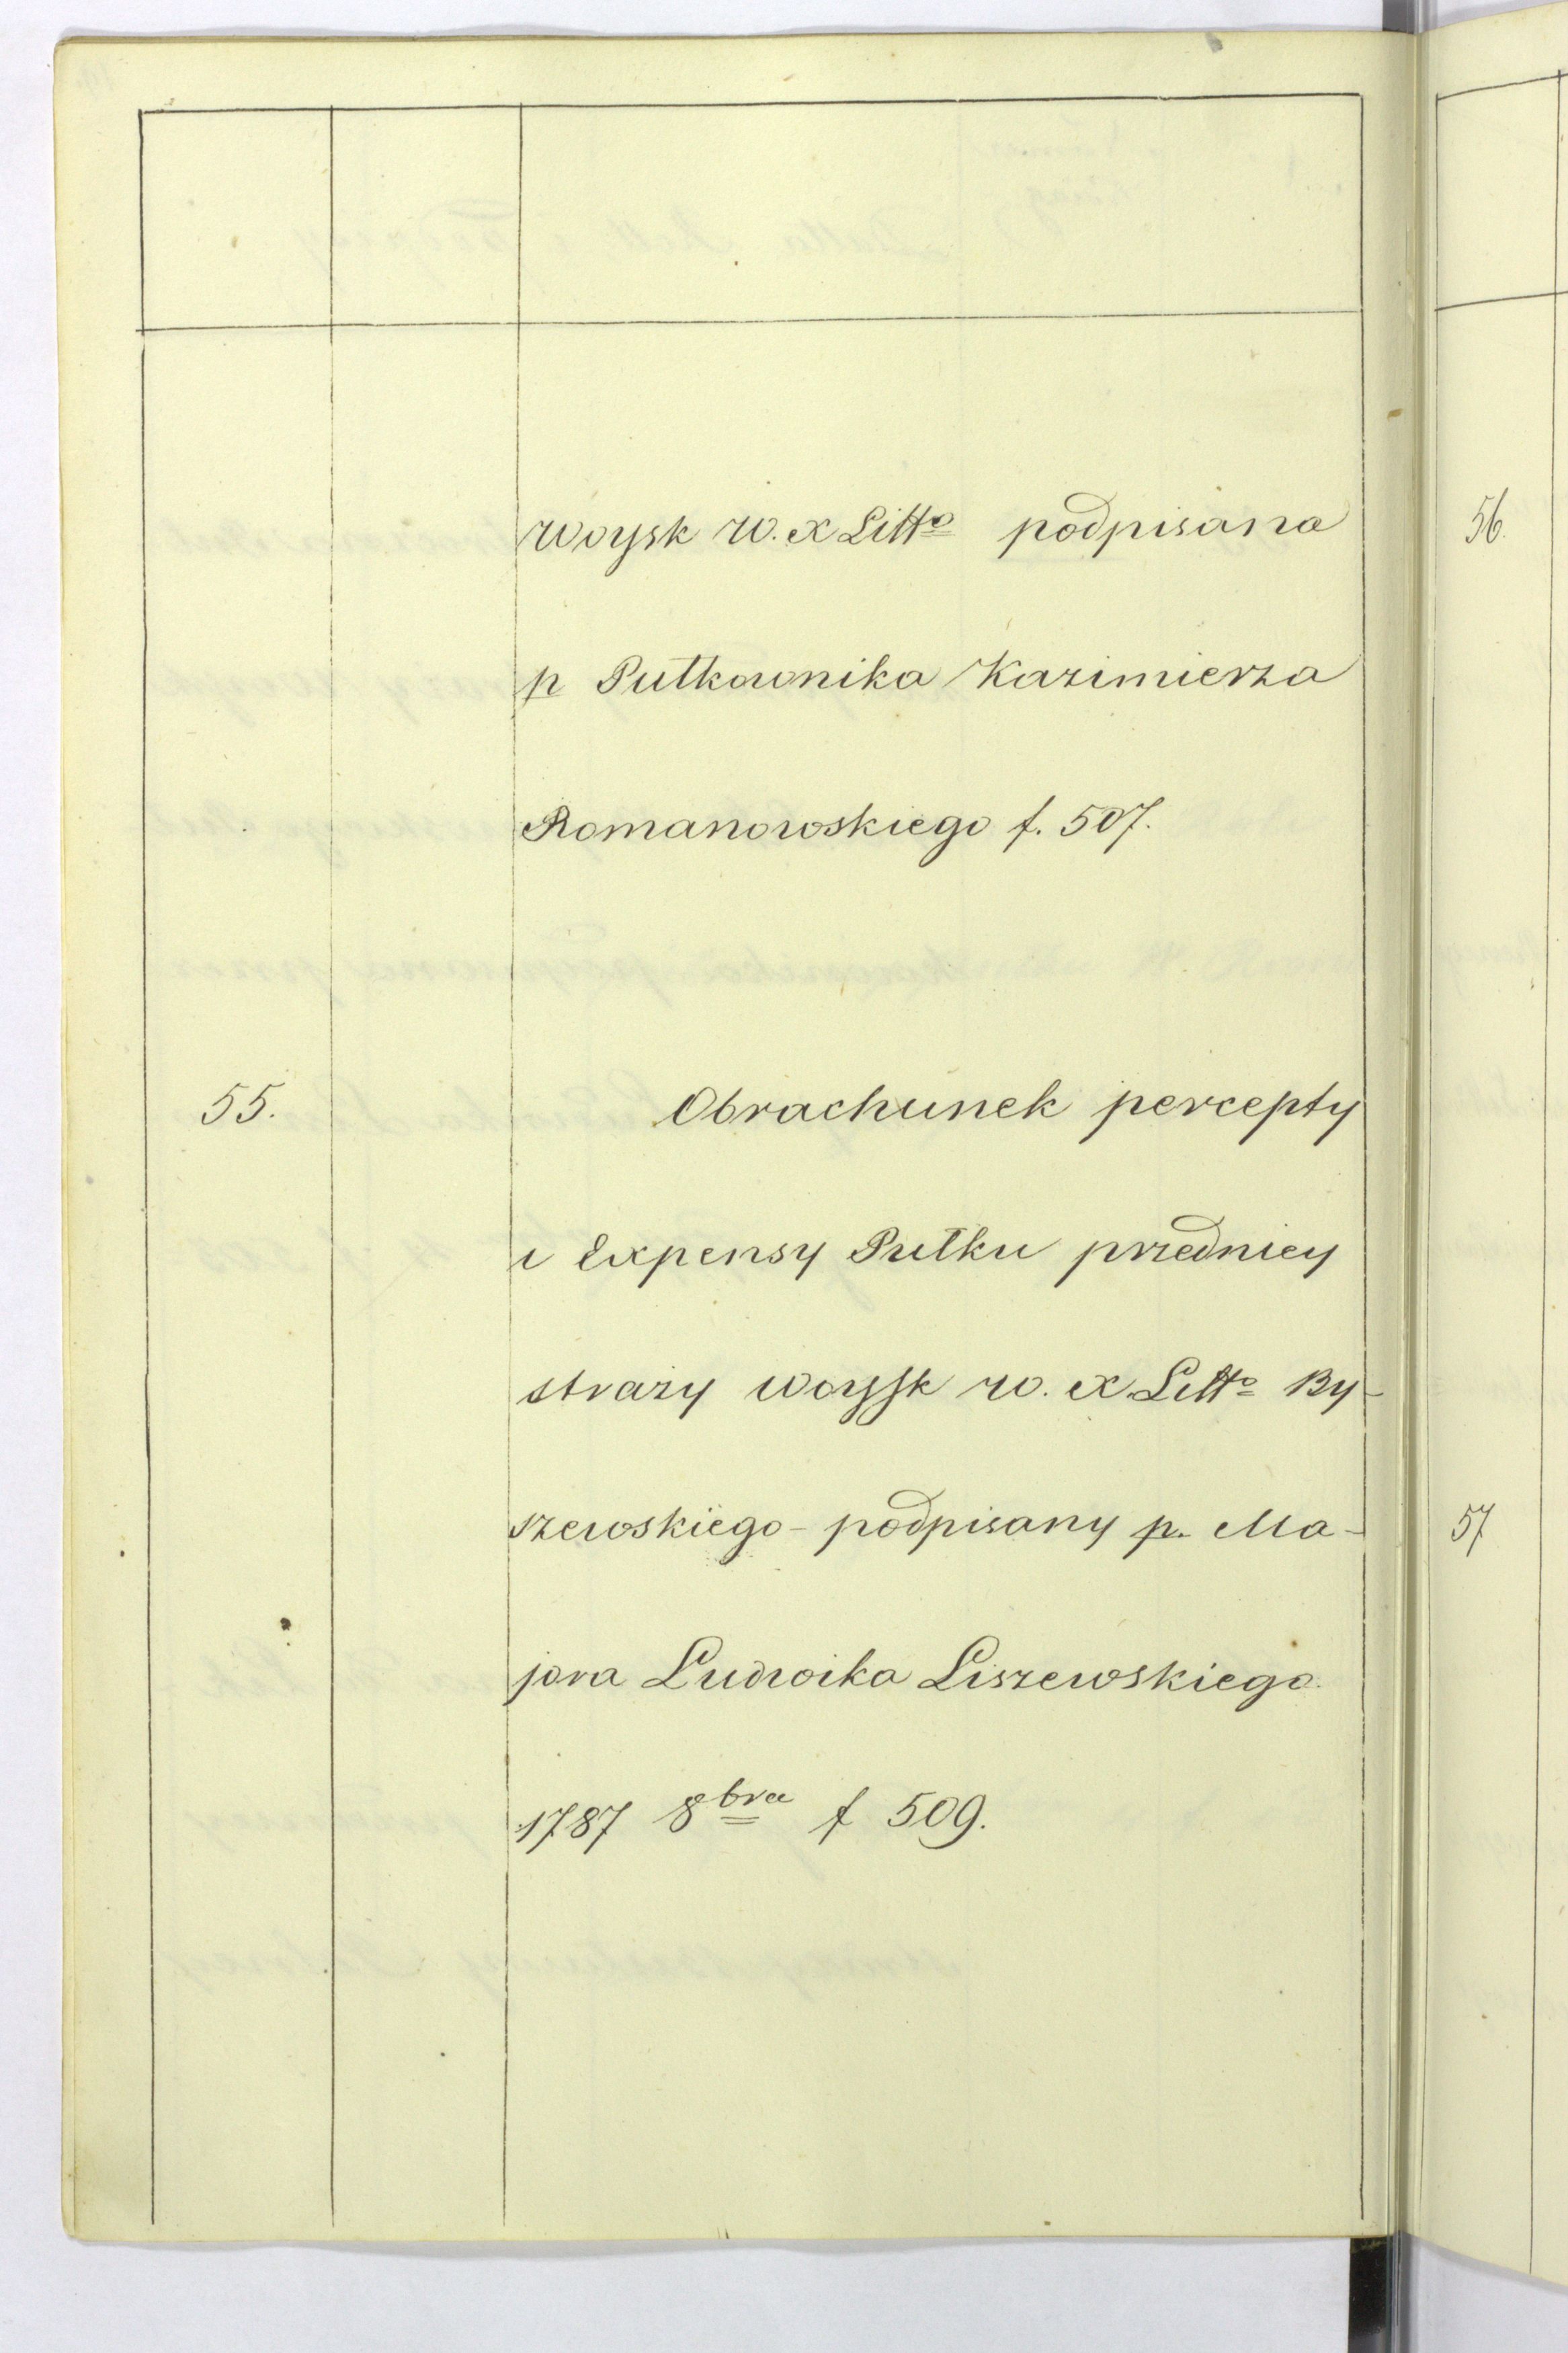 woysk W. X Litto podpisana
p Pułkownika Kazimierza
Romanowskiego f. 507.
55. Obrachunek percepty
i Expensy Pułku przedniey
straży woysk W. X Litto By-
szewskiego - podpisany p. Ma-
jora Ludwika Liszewskiego
1787 8bra f 509.
56.
57